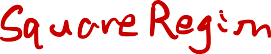 Square Regin